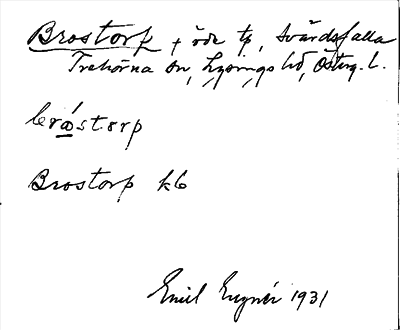 Brostorp + öde tp, Svärdsfalla
Trehörna sn, Lysings hd, Österg. l.
bråstɵrp
Brostorp kb
Emil Engnér 1931